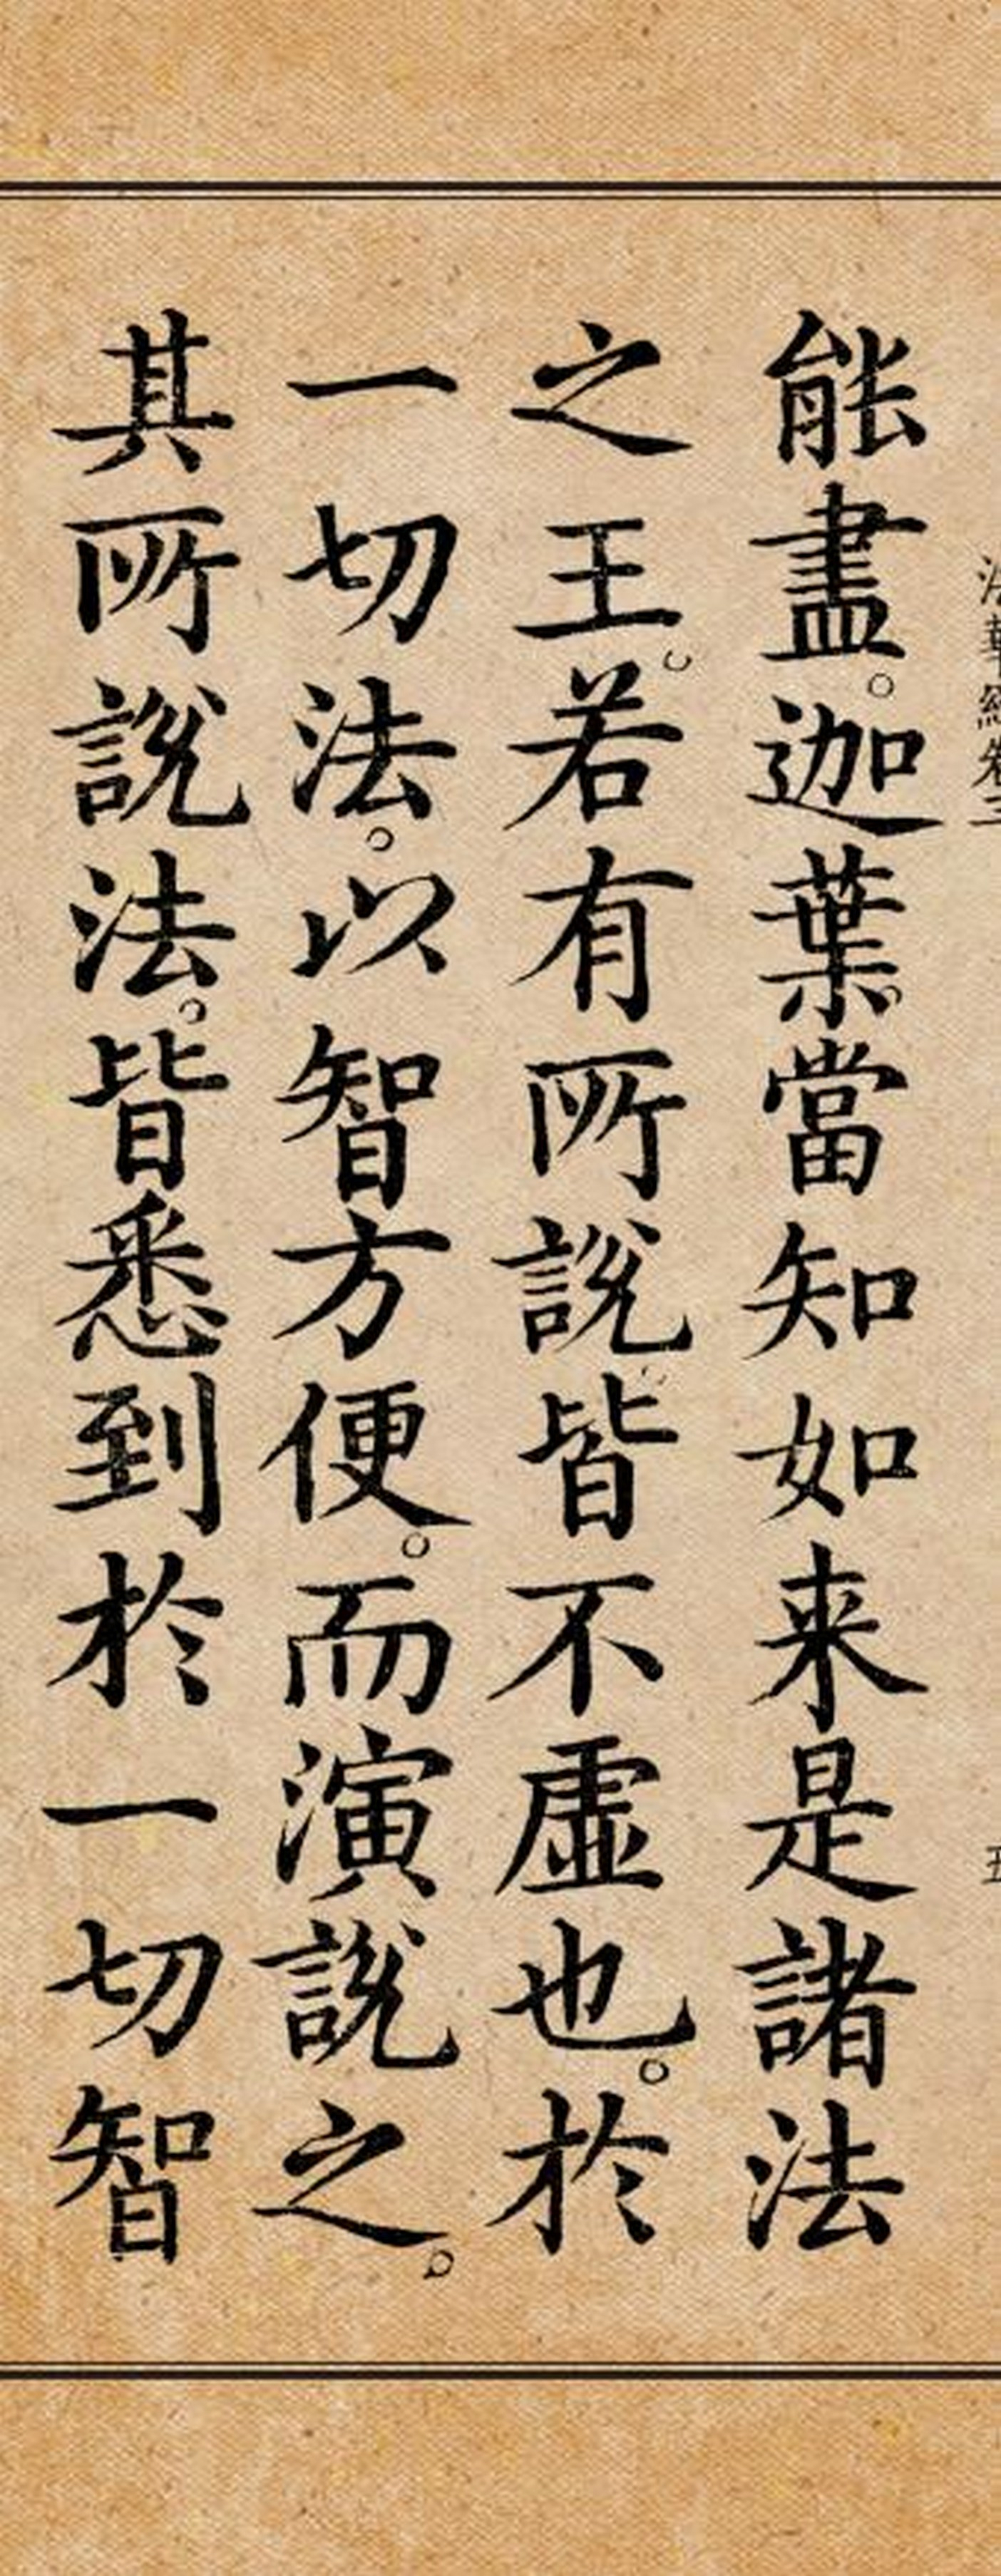 法華經卷三
五
能盡。迦葉。當知如来是諸法
之王。若有所說皆不虛也。於
一切法。以智方便。而演說之。
其所說法。皆悉到於一切智